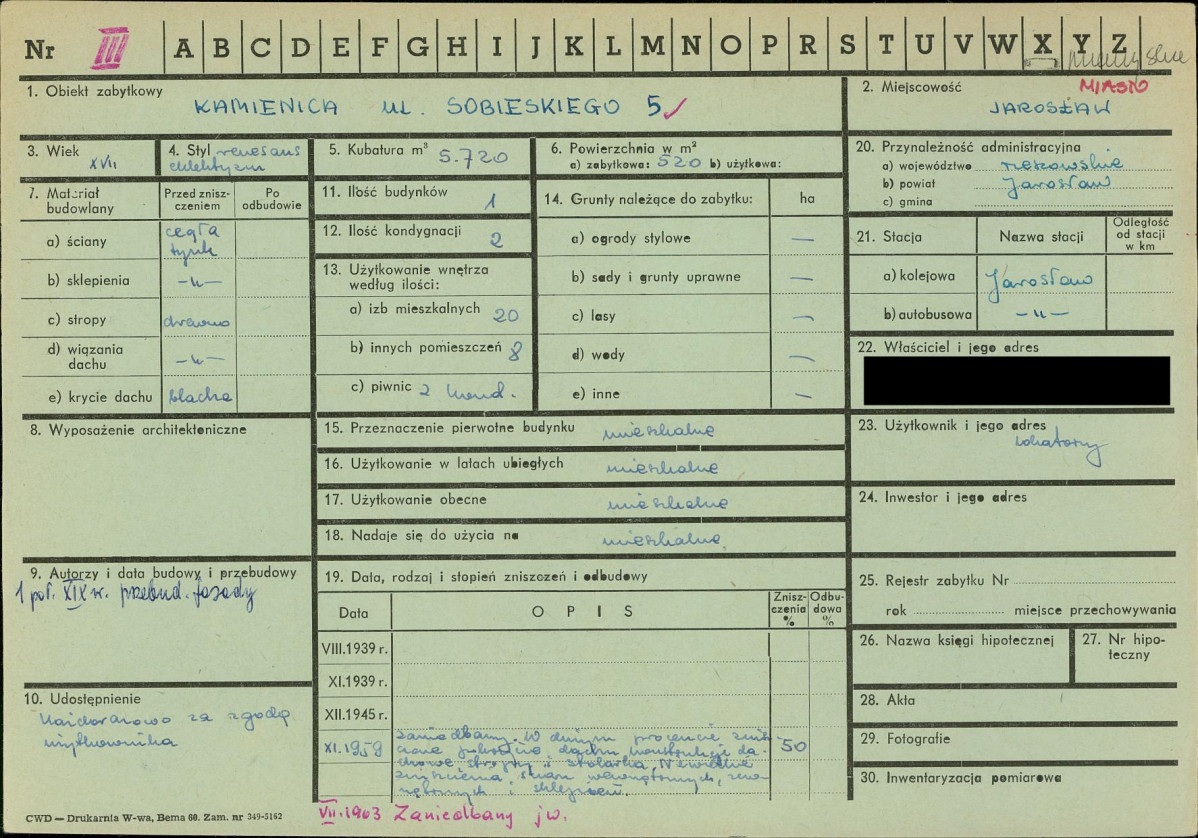 Nr III A B C D E F G H I J K L M N O P R S T U V W X Y Z
1. Obiekt zabytkowy
KAMIENICA ul. SOBIESKIEGO 5
2. Miejscowość MIASTO
JAROSŁAW
3. Wiek
XVII
4. Styl renesans
eklektyzm
5. Kubatura m³ 5.720
6. Powierzchnia w m²
a) zabytkowa: 520 b) użytkowa:
20. Przynależność administracyjna
a) województwo rzeszowskie
b) powiat Jarosław
c) gmina
7. Materiał budowlany
Przed zniszczeniem
Po odbudowie
a) ściany cegła
tynk
b) sklepienia -„-
c) stropy drewno
d) wiązania dachu -„-
e) krycie dachu blacha
11. Ilość budynków 1
12. Ilość kondygnacji 2
13. Użytkowanie wnętrza
według ilości:
a) izb mieszkalnych 20
b) innych pomieszczeń 8
c) piwnic 2 kond.
14. Grunty należące do zabytku: ha
a) ogrody stylowe —
b) sady i grunty uprawne —
c) lasy —
d) wody —
e) inne —
21. Stacja Nazwa stacji Odległość
od stacji
w km
a) kolejowa Jarosław
b) autobusowa -„-
22. Właściciel i jego adres
8. Wyposażenie architektoniczne
15. Przeznaczenie pierwotne budynku mieszkalne
16. Użytkowanie w latach ubiegłych mieszkalne
17. Użytkowanie obecne mieszkalne
18. Nadaje się do użycia na mieszkalne
23. Użytkownik i jego adres
lokatorzy
24. Inwestor i jego adres
9. Autorzy i data budowy i przebudowy
1 poł. XIX w. przebud. fasady
19. Data, rodzaj i stopień zniszczeń i odbudowy
Data OPIS Zniszczenia % Odbudowa %
VIII.1939 r.
XI.1939 r.
XII.1945 r.
XI.1959 zaniedbany. W dużym procencie znisz-
czone pokrycie dachu konstrukcje da-
chowe stropy i stolarka. Niewielkie
zniszczenia ścian wewnętrznych, zew-
nętrznych i sklepień. 50
VII.1963 Zaniedbany jw.
25. Rejestr zabytku Nr
rok miejsce przechowywania
26. Nazwa księgi hipotecznej
27. Nr hipo-
teczny
10. Udostępnienie
za zgodą
użytkownika
28. Akta
29. Fotografie
30. Inwentaryzacja pomiarowa
CWD — Drukarnia W-wa, Bema 60. Zam. nr 349-5162